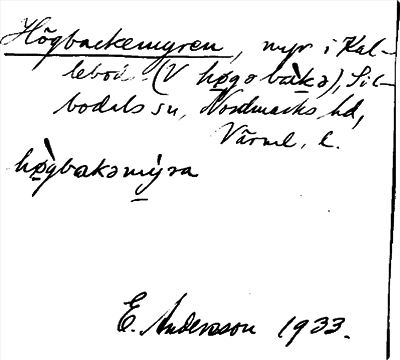 Högbackemyren, myr i Kal-
lebod (V høgobàkə), Sil-
bodals sn, Nordmarks hd,
Värml. l.
hø̀gbakəmýra
E. Andersson 1933.